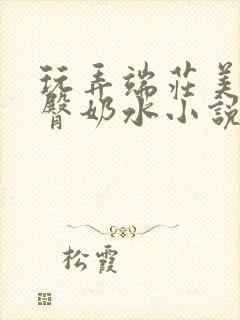 玩弄端莊美
臀奶水小說
松霞